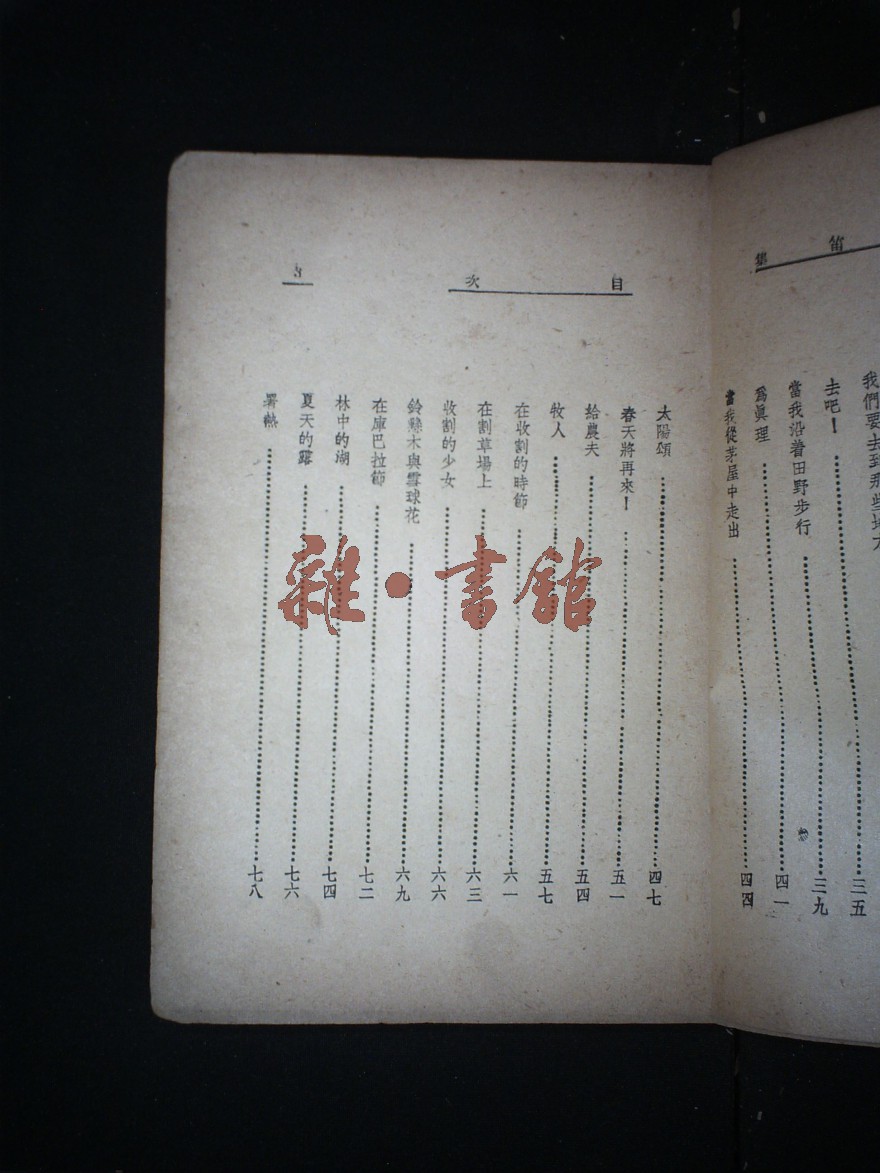 笛集
我們要去到那些地方
三五
去吧！
三九
當我沿着田野步行
四一
爲眞理
四四
當我從茅屋中走出
目次
3
太陽頌
四七
春天將再來！
五一
給農夫
五四
牧人
五七
在收割的時節
六一
在割草場上
六三
收割的少女
六六
鈴懸木與雪球花
六九
在庫巴拉節
七二
林中的湖
七四
夏天的露
七六
暑熱
七八
雜·書館